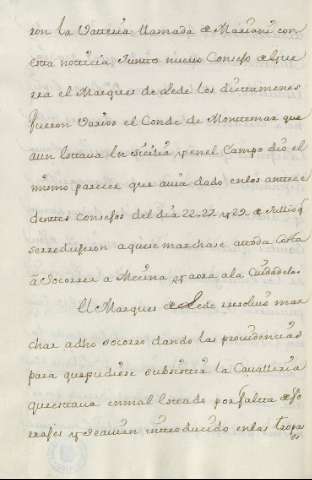 ron la Vatteria llamada de Mariani con
esta noticia Junto nuevo Consejo de Gue
rra el Marques de Lede los dictamenes
fueron varios el Conde de Montemar que
aun estava en Sicilia y en el Campo dio el
mismo parecer que avia dado en los antece
dentes Consejos del dia 22. 27 y 29 de Jullio q
se redujeron aque se marchase atoda Costa
à Socorrer a Mecina, y aora ala Ciudadela
El Marques de Lede resolvió mar
char adho socorro dando las providencias
para que pudiese subsistir la Cavalleria
que estava en mal estado por falta de fo
rrajes y se avian introducido en las tropas